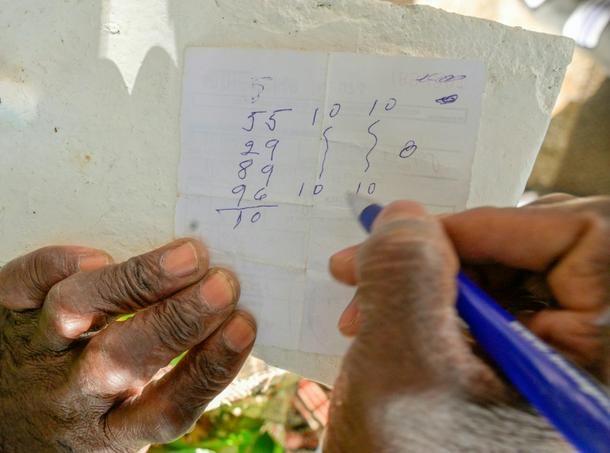 5
55 10 10
29
89 0
96 10 10
10